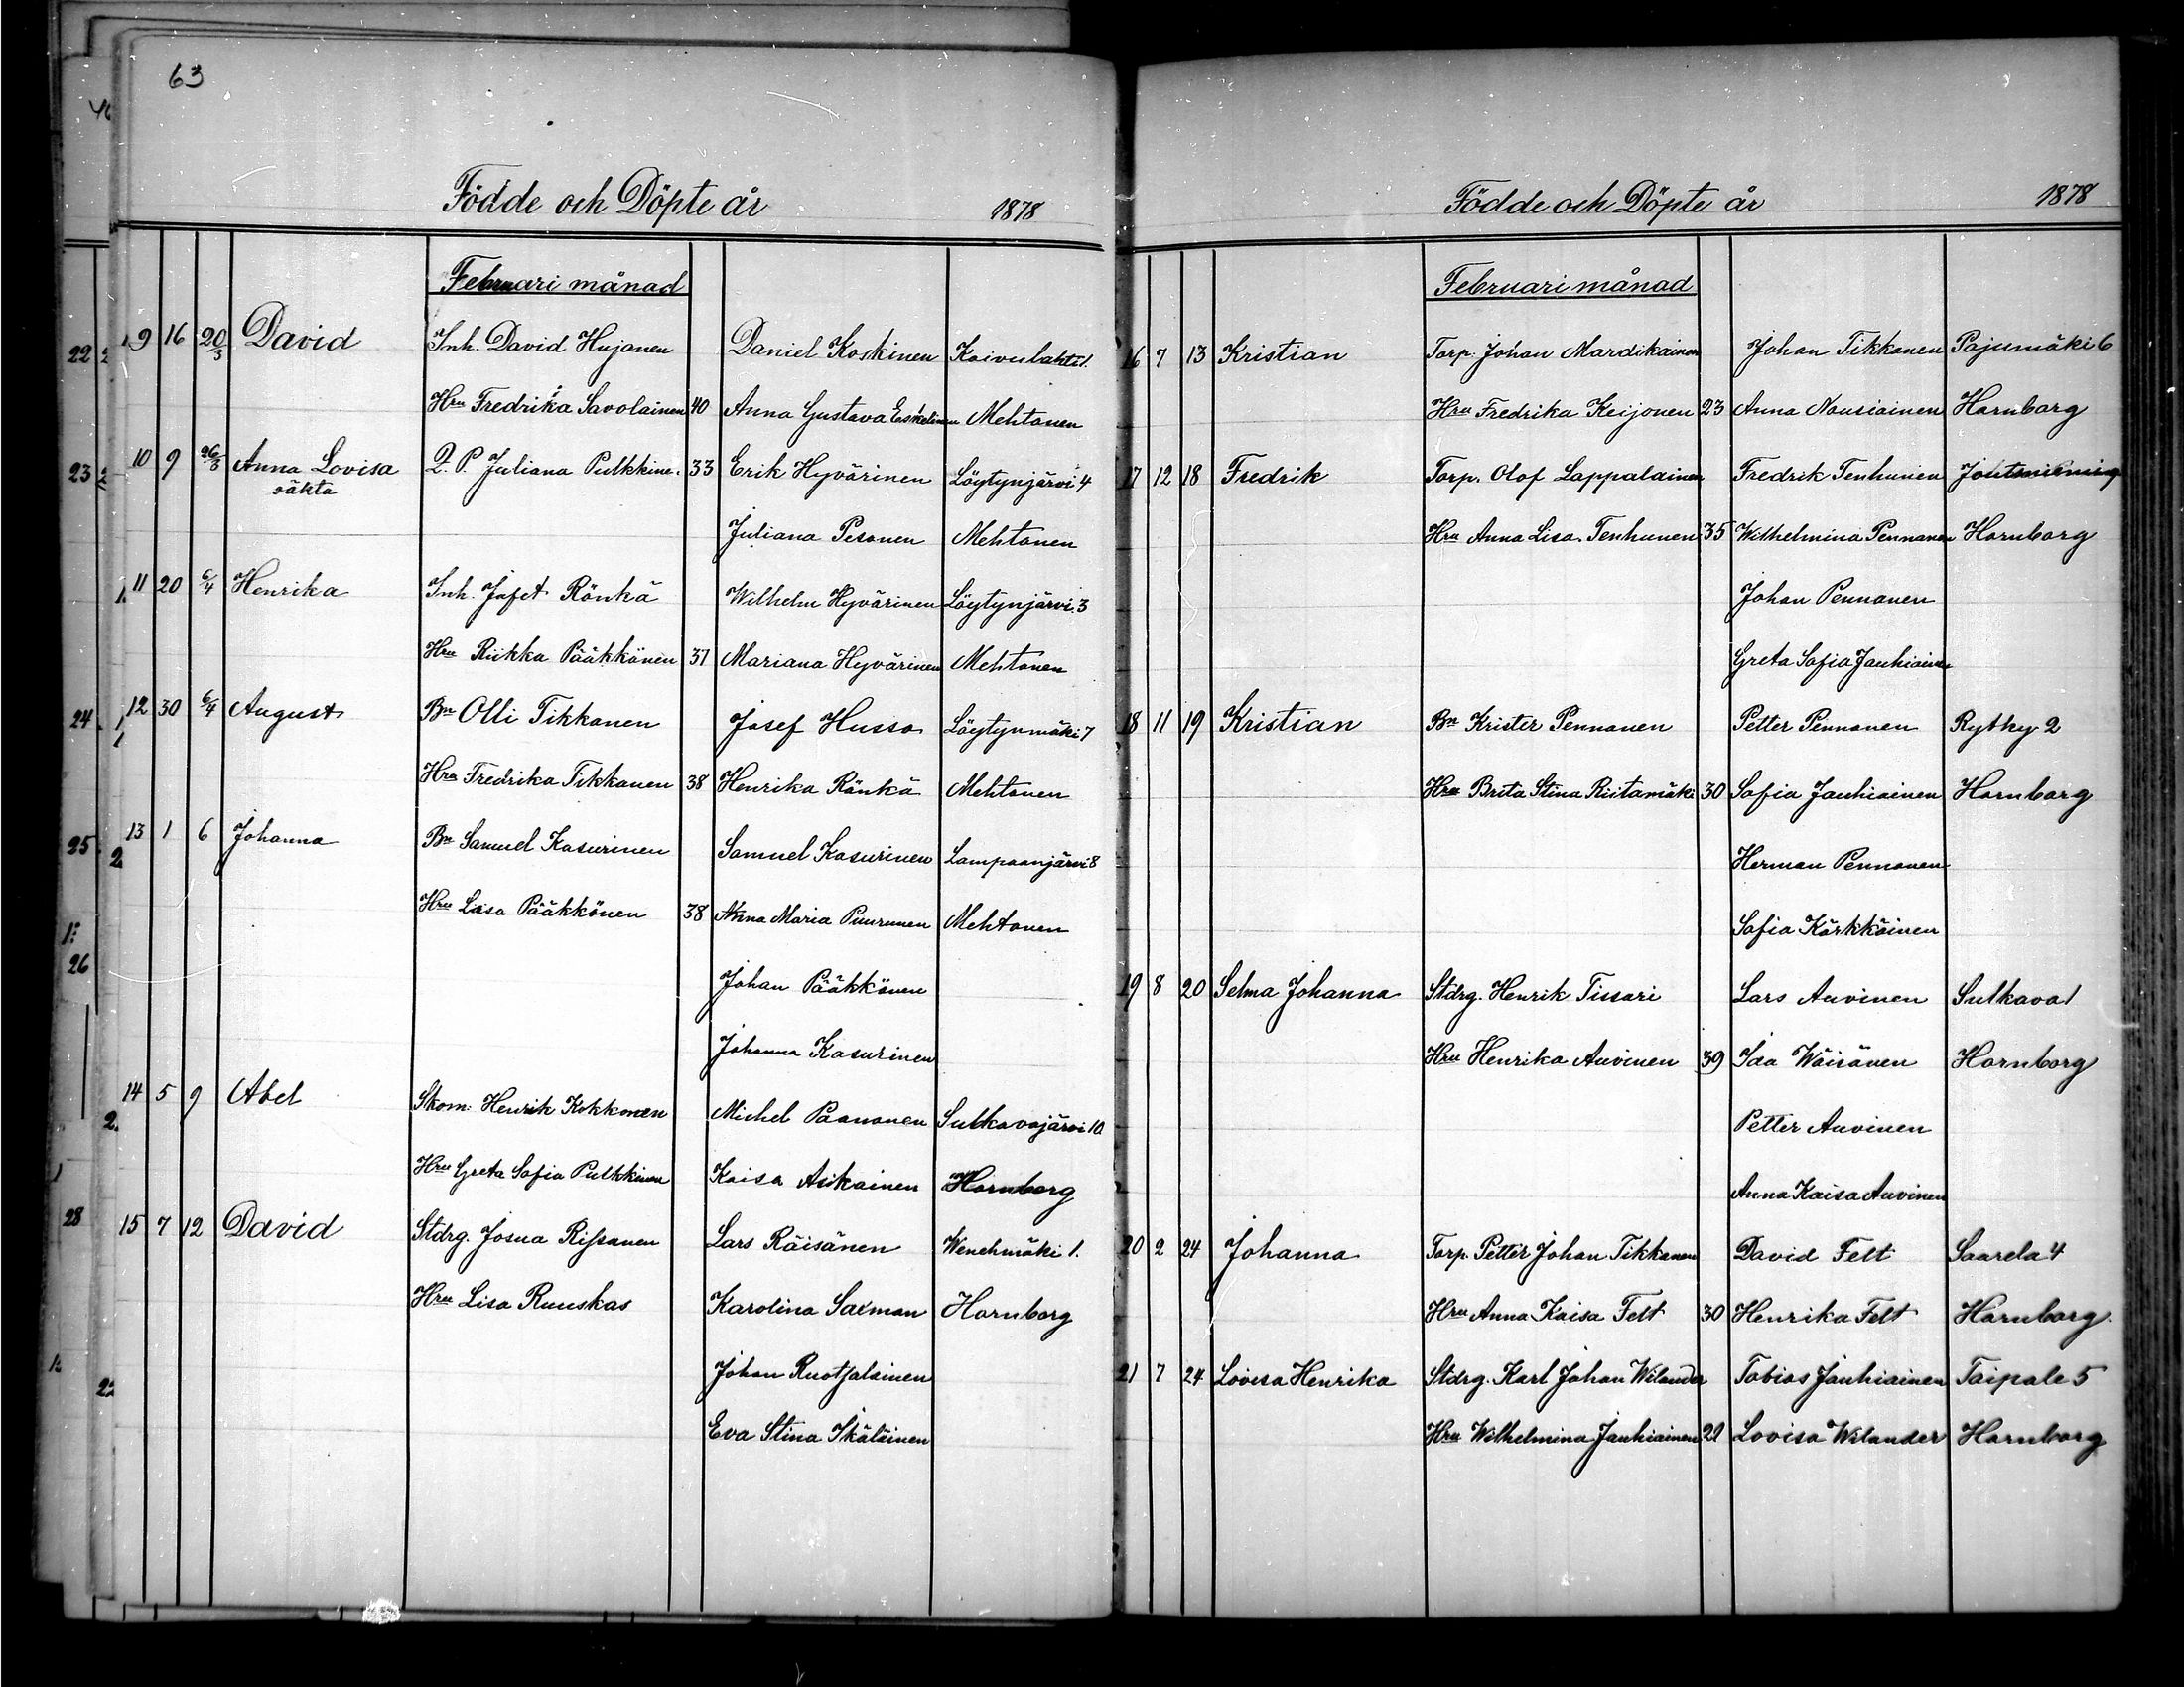 63
Födde och Döpte år 1878
Februari månad
9 16 20/3 David Inh. David Hujanen Daniel Koskinen Koivulahti 1.
Hru Fredrika Savolainen 40 Anna Gustava Eskelinen Mehtonen
10 9 26/3 Anna Lovisa Q. P. Juliana Pulkkine. 33 Erik Hyvärinen Löytynjärvi 4
oäkta
Juliana Pesonen Mehtonen
11 20 6/4 Henrika Inh. Jafet Rönkä Wilhelm Hyvärinen Löytynjärvi 3
Hru Riikka Pääkkönen 37 Mariana Hyvärinen Mehtonen
12 30 6/4 August Bn Olli Tikkanen Josef Husso Löytynmäki 7
Hru Fredrika Tikkanen 38 Henrika Rönkä Mehtonen
13 1 6 Johanna Bn Samuel Kasurinen Samuel Kasurinen Lampaanjärvi 8
Hru Lisa Pääkkönen 38 Anna Maria Puurunen Mehtonen
Johan Pääkkönen
Johanna Kasurinen
14 5 9 Abel Skom. Henrik Kokkonen Michel Paananen Sulkavajärvi 10
Hru Greta Sofia Pulkkinen Kaisa Asikainen Hornborg
15 7 12 David Stdrg. Josua Rissanen Lars Räisänen Wenehmäki 1.
Hru Lisa Ruuskas Karolina Saxman Hornborg
Johan Ruotsalainen
Eva Stina Ikäläinen
Födde och Döpte år 1878
Februari månad
16 7 13 Kristian Torp. Johan Mardikainen Johan Tikkanen Pajumäki 6
Hru Fredrika Keijonen 23 Anna Nousiainen Hornborg
17 12 18 Fredrik Torp. Olof Lappalainen Fredrik Tenhunen
Hru Anna Lisa Tenhunen 35 Wilhelmina Pennanen Hornborg
Johan Pennanen
Greta Sofia Jauhiainen
18 11 19 Kristian Bn Krister Pennanen Petter Pennanen Rytky 2
Hru Brita Stina Riitamäki 30 Sofia Jauhiainen Hornborg
Herman Pennanen
Sofia Kärkkäinen
19 8 20 Selma Johanna Stdrg. Henrik Tissari Lars Auvinen Sulkava 1
Hru Henrika Auvinen 39 Ida Wäisänen Hornborg
Petter Auvinen
Anna Kaisa Auvinen
20 2 24 Johanna Torp. Petter Johan Tikkanen David Felt Saarela 4
Hru Anna Kaisa Felt 30 Henrika Felt Hornborg.
21 7 24 Lovisa Henrika Stdrg. Karl Johan Wilander Tobias Jauhiainen Taipale 5
Hru Wilhelmina Jauhiainen 29 Lovisa Wilander Hornborg